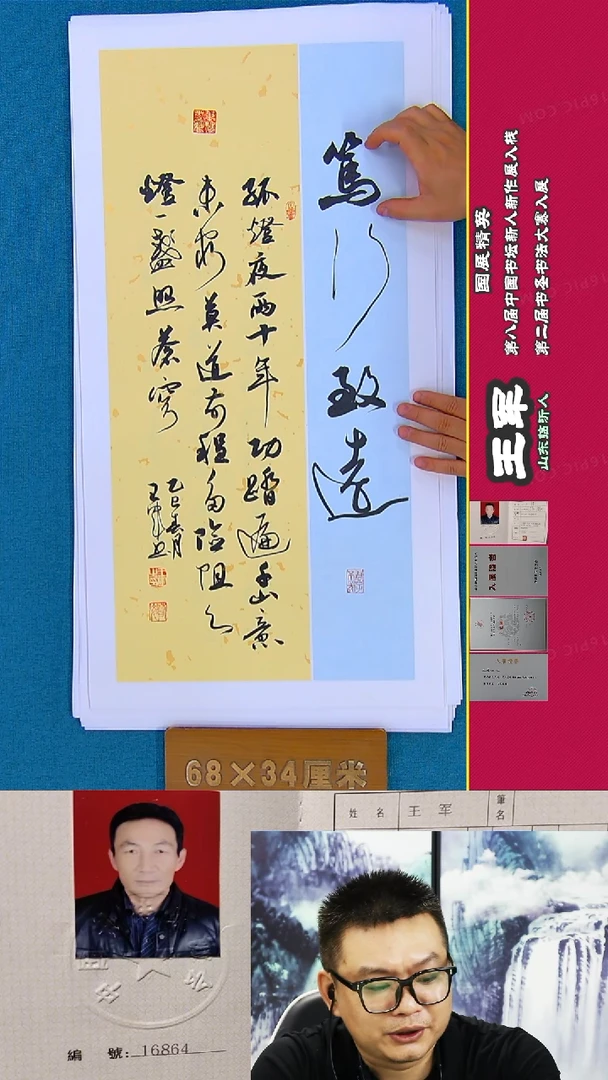 篤行致遠
孤燈夜雨十年功踏遍千山意
未窮莫道前程多險阻心
燈一盞照蒼穹
乙巳春月
王軍書
国展精英
第八届中国书坛新人新作展入展
第二届书圣书法大赛入展
王军
山东临沂人
入展證書
68×34厘米
姓 名 王 军 筆名
編 號: 16864